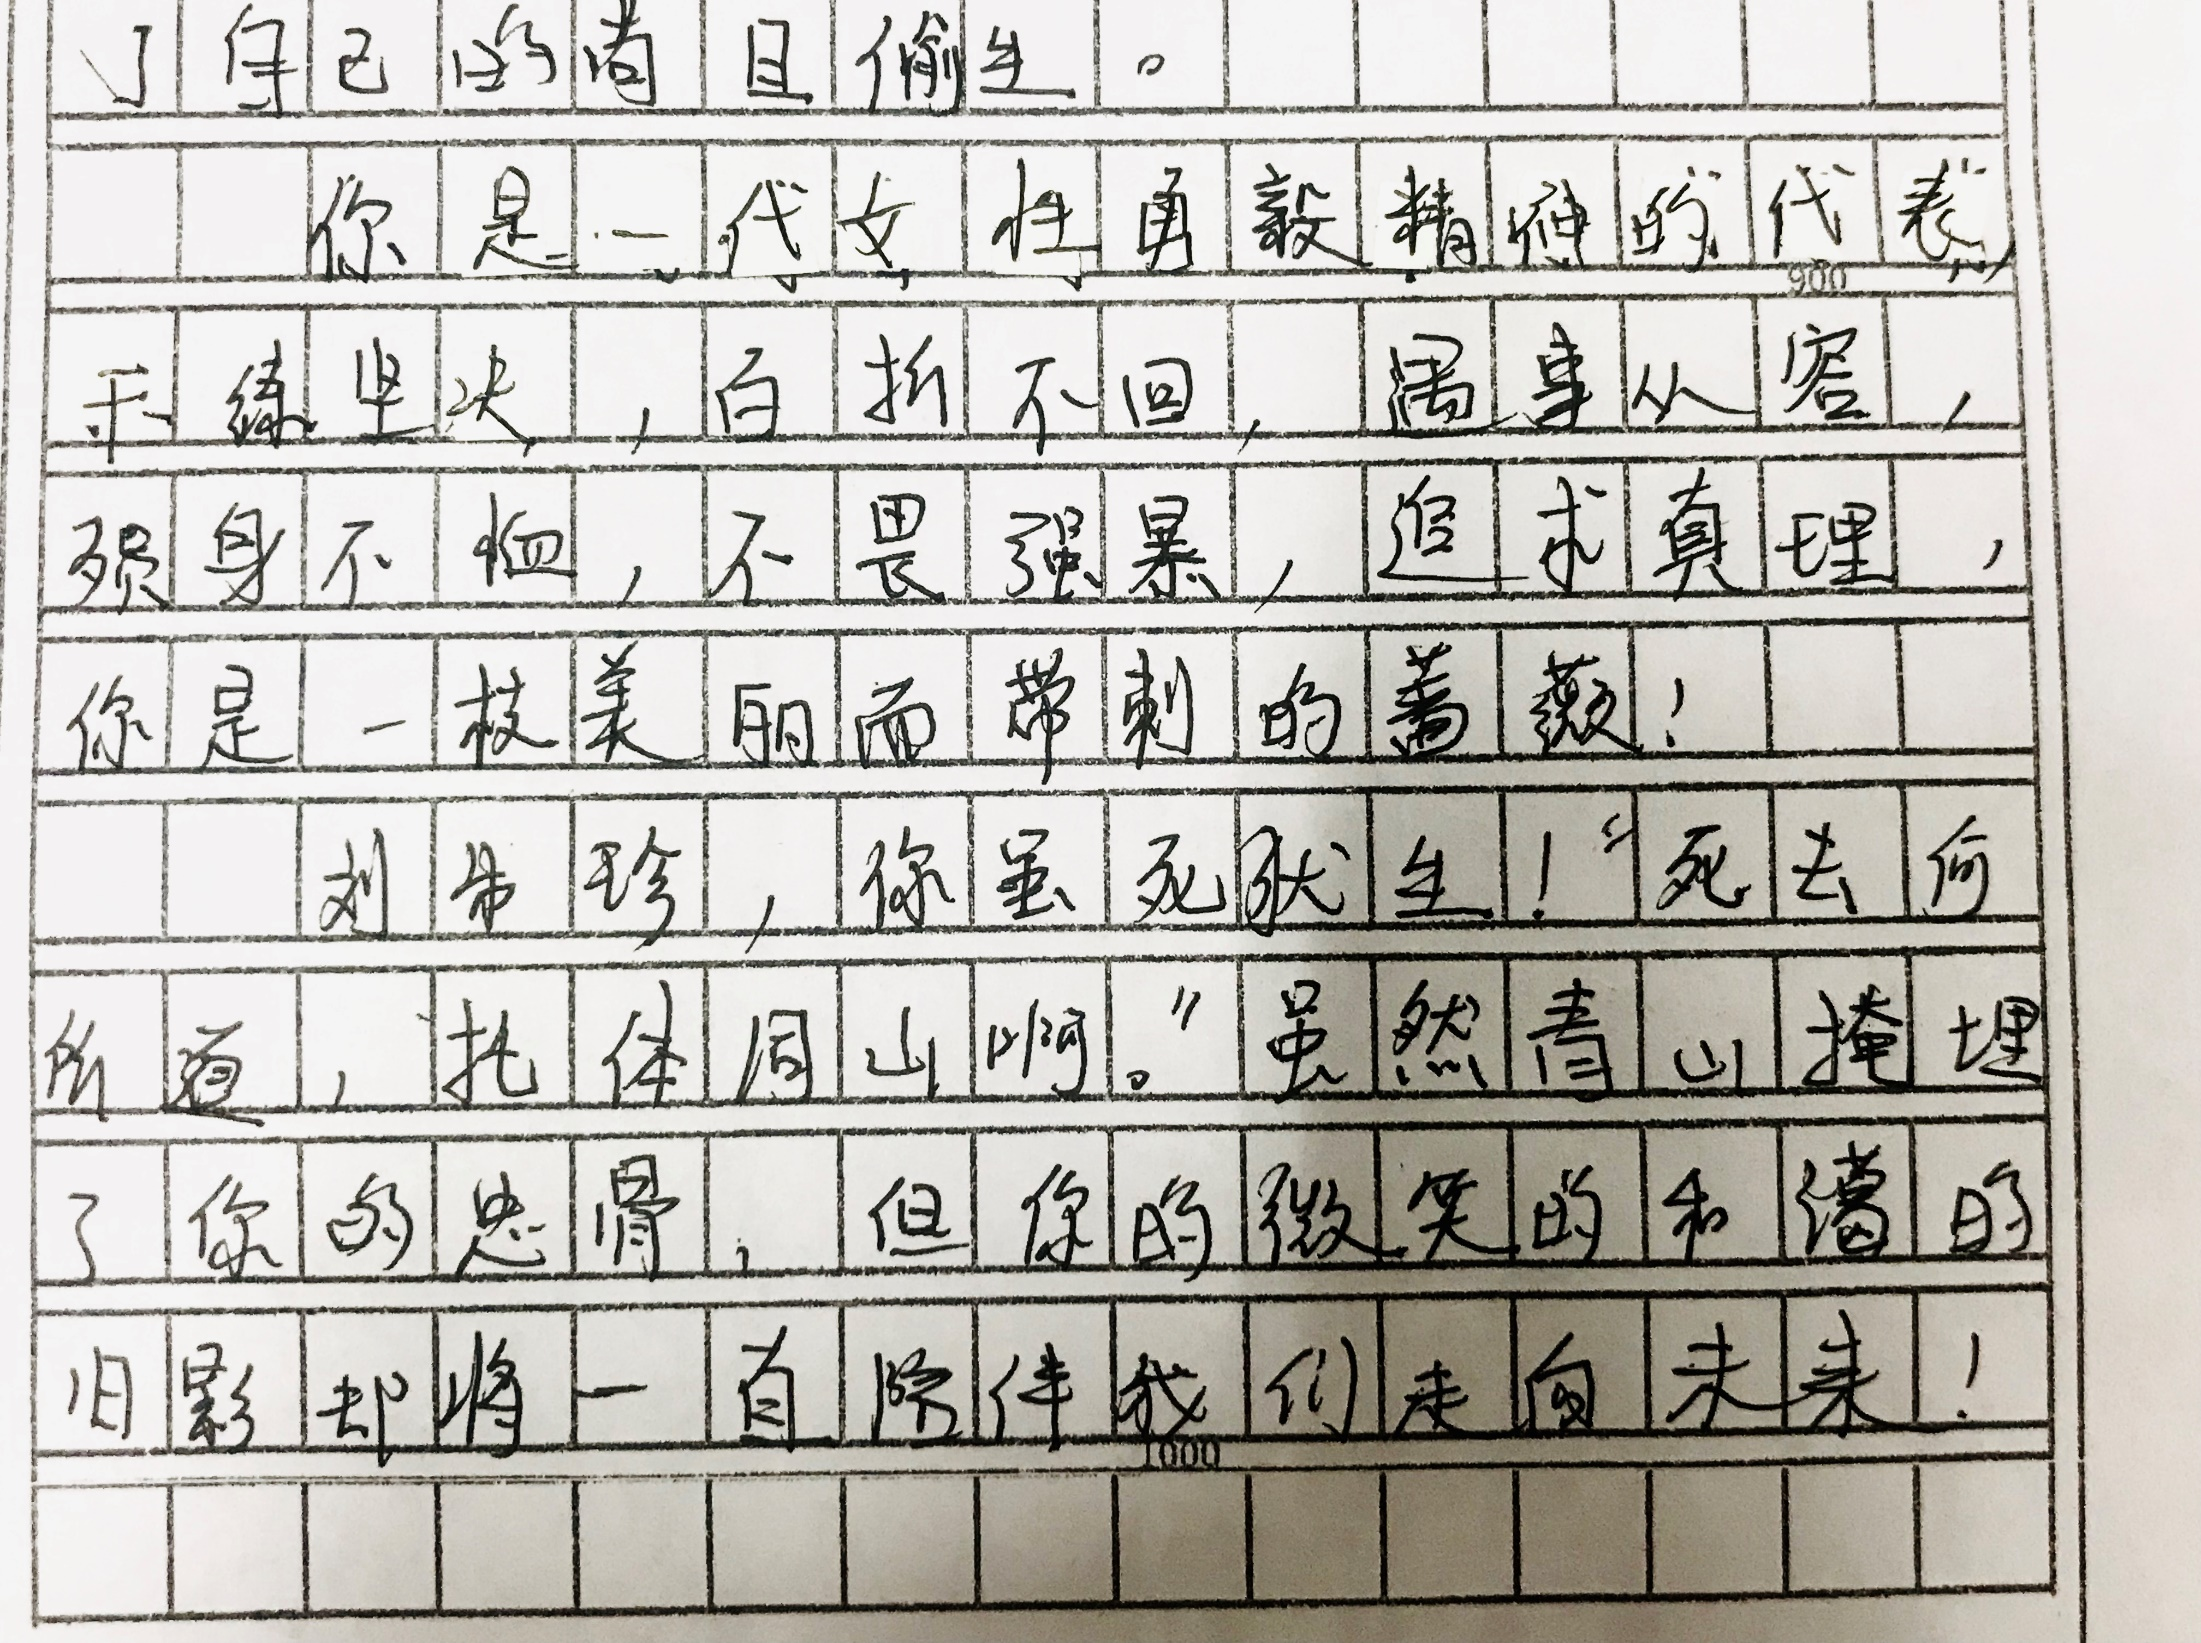 了自己的苟且偷生。
你是一代女性勇毅精神的代表,
900
干练坚决,百折不回,遇事从容,
殒身不恤,不畏强暴,追求真理,
你是一枝美丽而带刺的蔷薇!
刘和珍,你虽死犹生!“死去何
所道,托体同山啊。”虽然青山掩埋
了你的忠骨,但你的微笑的和蔼的
旧影却将一直陪伴我们走向未来!
1000